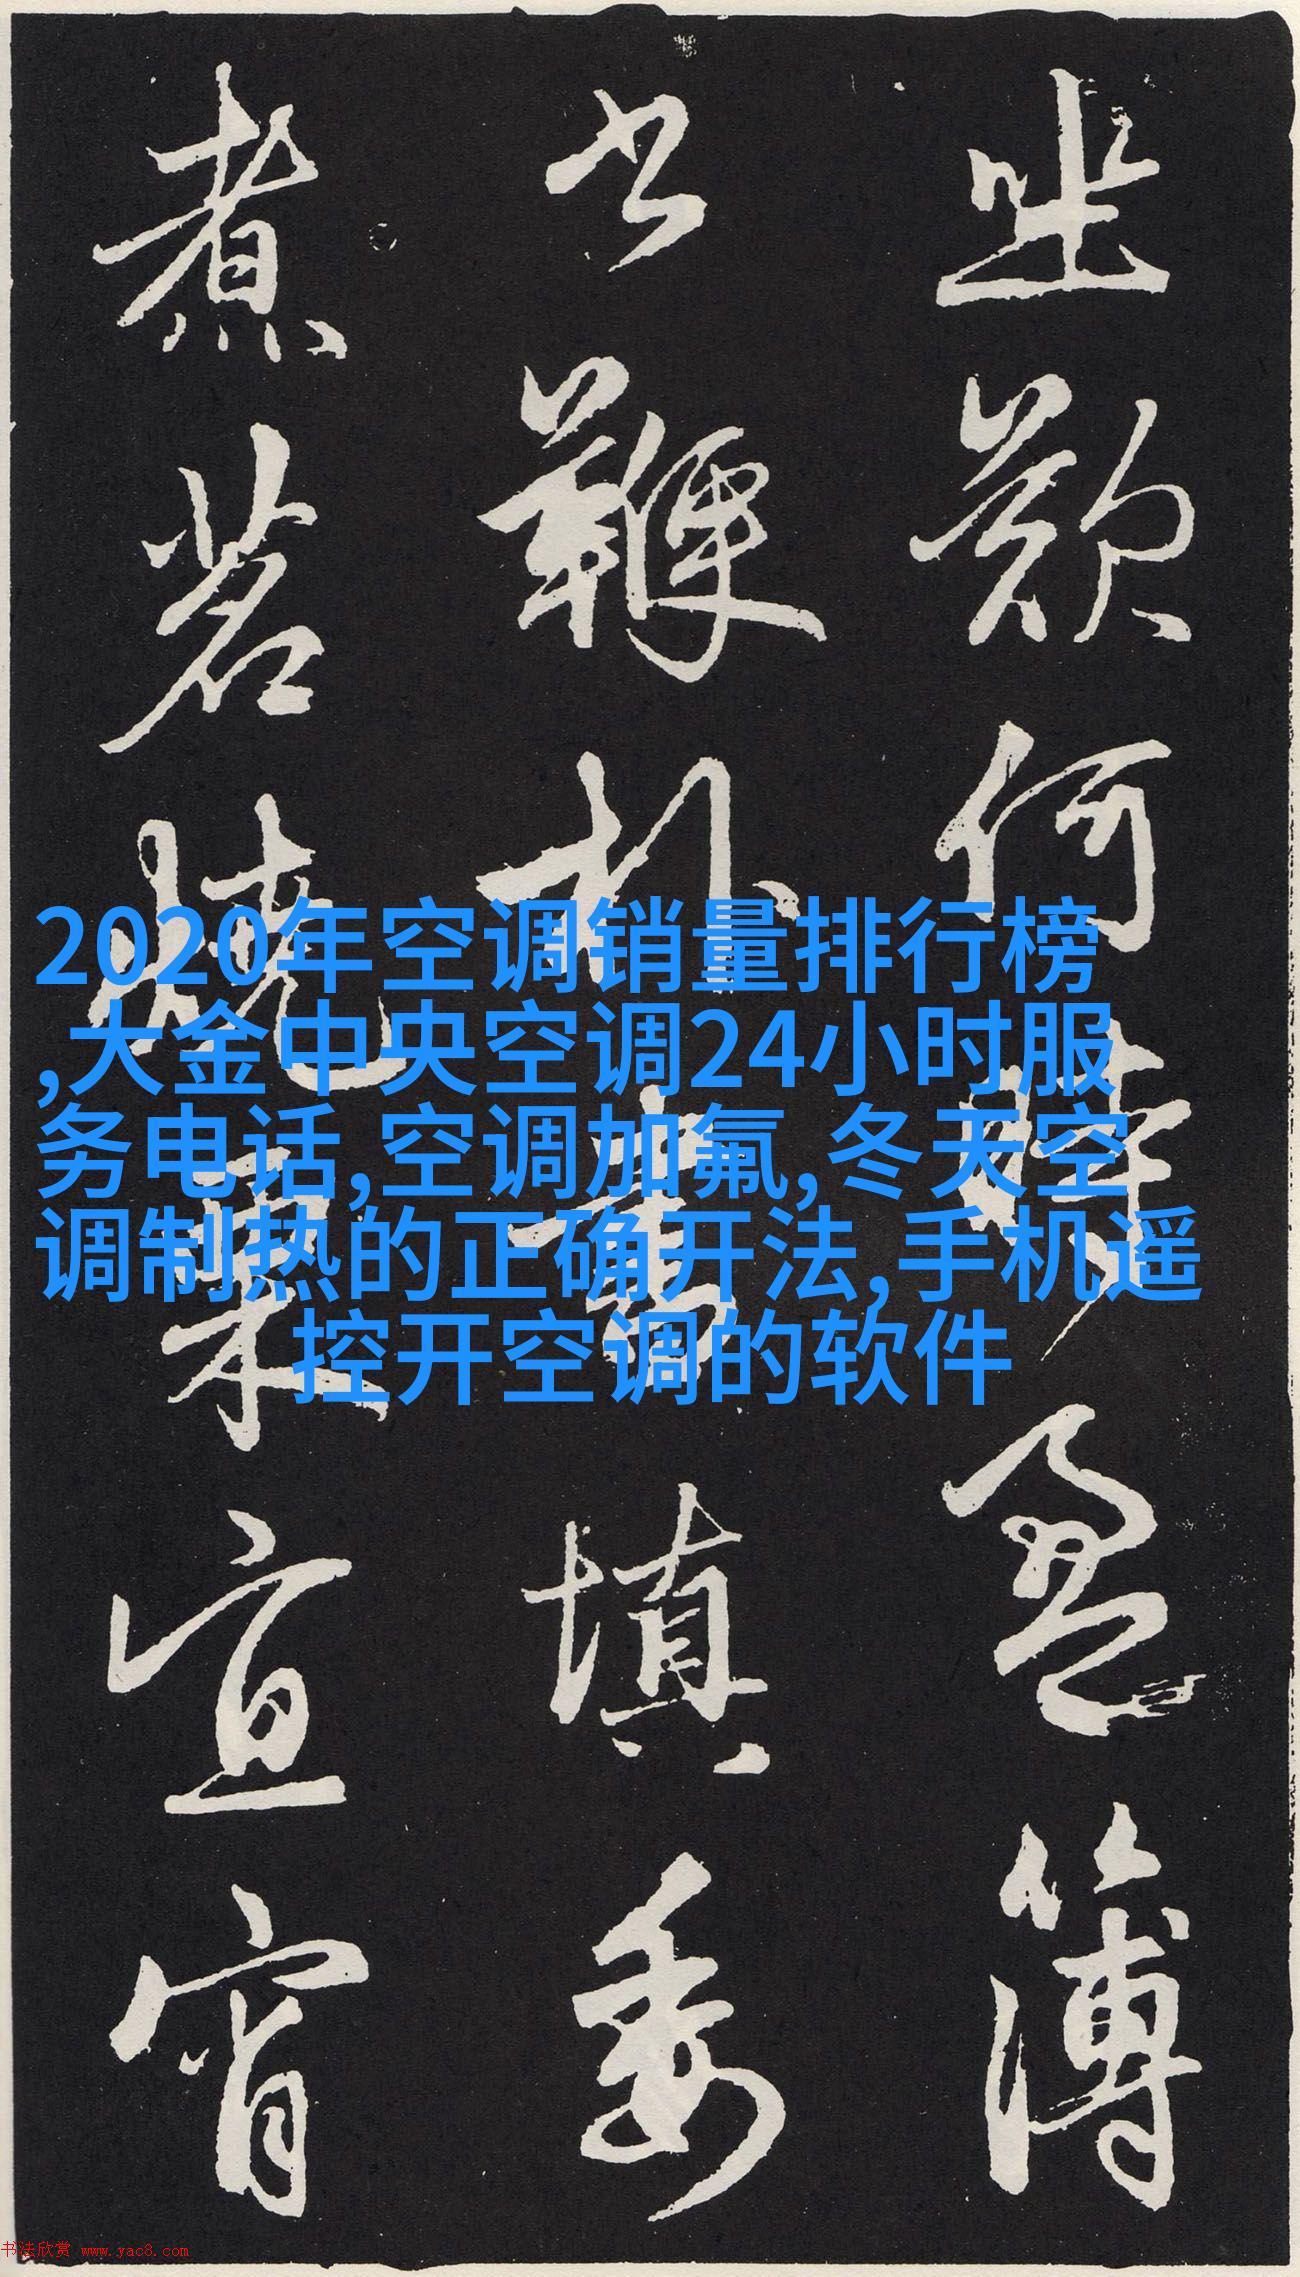 歎何時盈簿
書鞭朴晝填委
煮茗燒栗宜宵
2020年空调销量排行榜
,大金中央空调24小时服
务电话,空调加氟,冬天空
调制热的正确开法,手机遥
控开空调的软件
书法欣赏 www.yac8.com